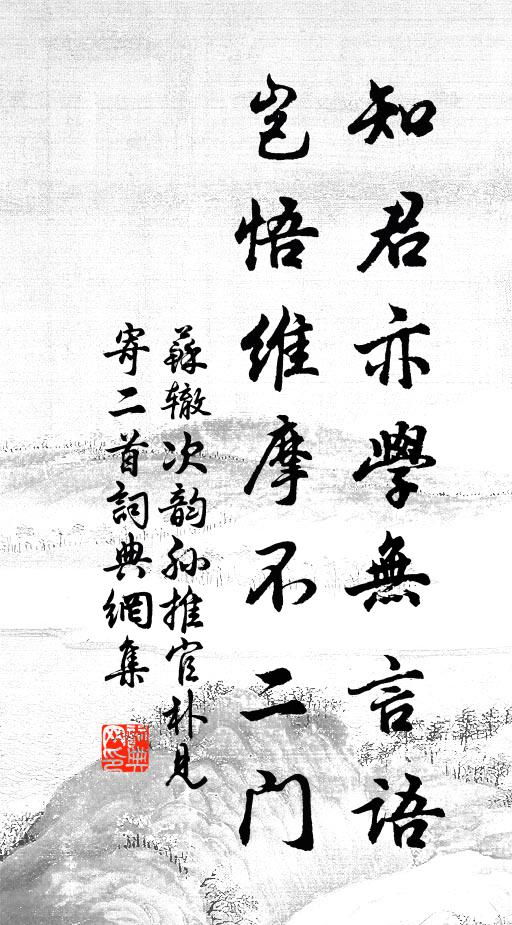 知君亦學無言語
岂悟維摩不二门
蘇辙次韵孙推官朴見
寄二首詞典網集